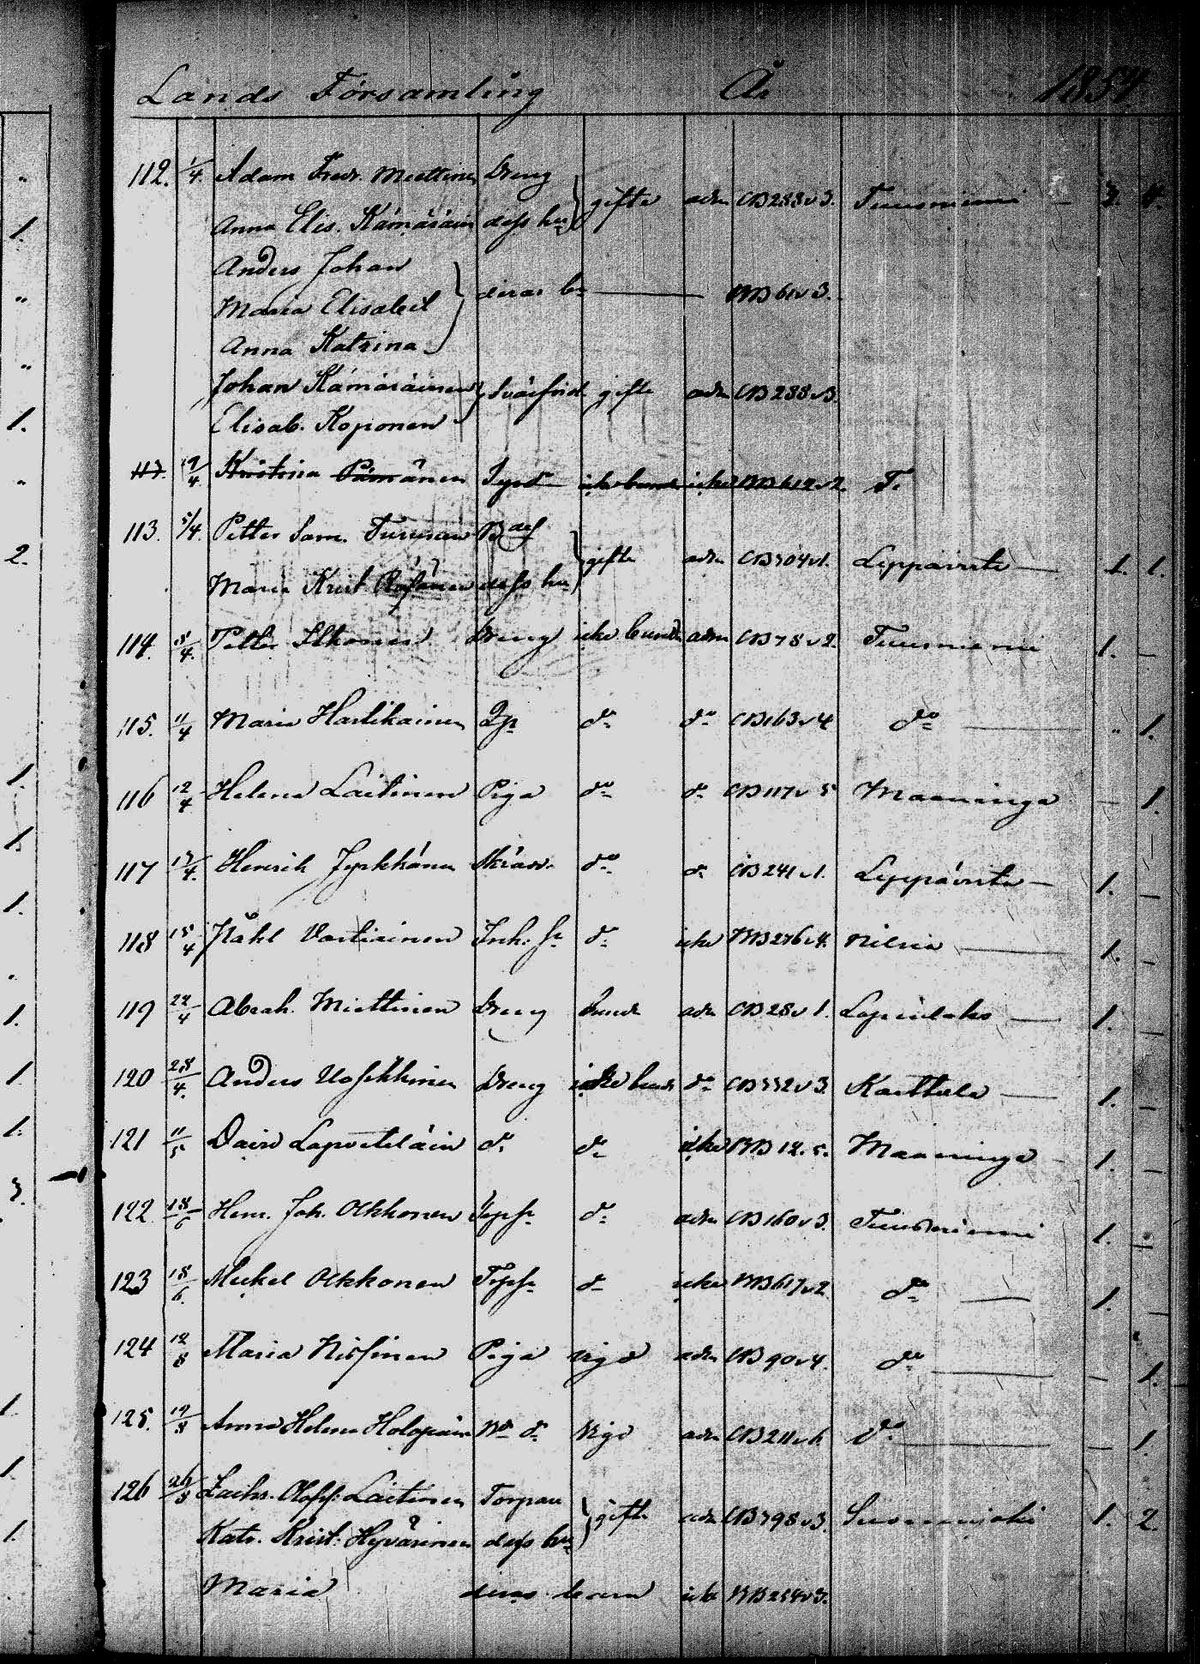 Lands Församling År 1854
112. 1/4. Adam Fredr. Miettinen Dreng
gifte adm CB 288 v 3. Tuusniemi — 3. 4.
Anna Elis. Kämäräin dess hu
Anders Johan
Maria Elisabet deras bn — BB 61 v 3.
Anna Katrina
Johan Kämäräinen Svärföräld. gifte adm CB 288 v 3.
Elisab. Koponen
117. 19/4 Kristina icke bunde icke T.
113. 5/4. Petter Sam. Turunen
gifte adm CB 304 v 1. Leppävirta — 1. 1.
Maria Krist dess hu
114. 8/4. Petter Ilkonen Dreng icke bunde adm CB 78 v 2. Tuusniemi 1. —
115. 11/4 Maria Hartikainen do do CB 163 v 4 do — " 1.
116 12/4 Helena Laitinen Piga do do CB 117 v 5 Maaninga — 1.
117 13/4. Henrik Jyrkkänen Skräd. do do CB 241 v 1. Leppävirta — 1. —
118 15/4 Påhl Vartiainen Inh. sn do icke BB 276 v 4. Nilsia — 1. —
119 22/4 Abrah. Miettinen Dreng bunde adm CB 28 v 1. Lapinlaks — 1. —
120 28/4. Anders Dreng icke bunde do CB 332 v 3. Karttula — 1. —
121 11/5 David do do icke BB 12. 5. Maaninga 1. —
122 18/6 Henr. Joh. Okkonen do adm CB 160 v 3. Tuusniemi 1. —
123 18/6. Mickel Okkonen do icke BB 617 v 2 do — 1. —
124 12/8 Maria Nissinen Piga vigd adm CB 90 v 4. do — 1.
125. 19/8 Anna Helena Holopain do Vigd adm CB 211 v 6 do — — 1.
126 26/8 Zachr. Olofss: Laitinen Torpare
gifte adm CB 398 v 3. Suonenjoki 1. 2.
Katr. Krist: Hyvärinen dess hu
Maria deras barn icke BB 254 v 3.
1.
"
"
1.
"
2.
1.
1.
1.
1.
1.
1.
3.
1.
1.
1.